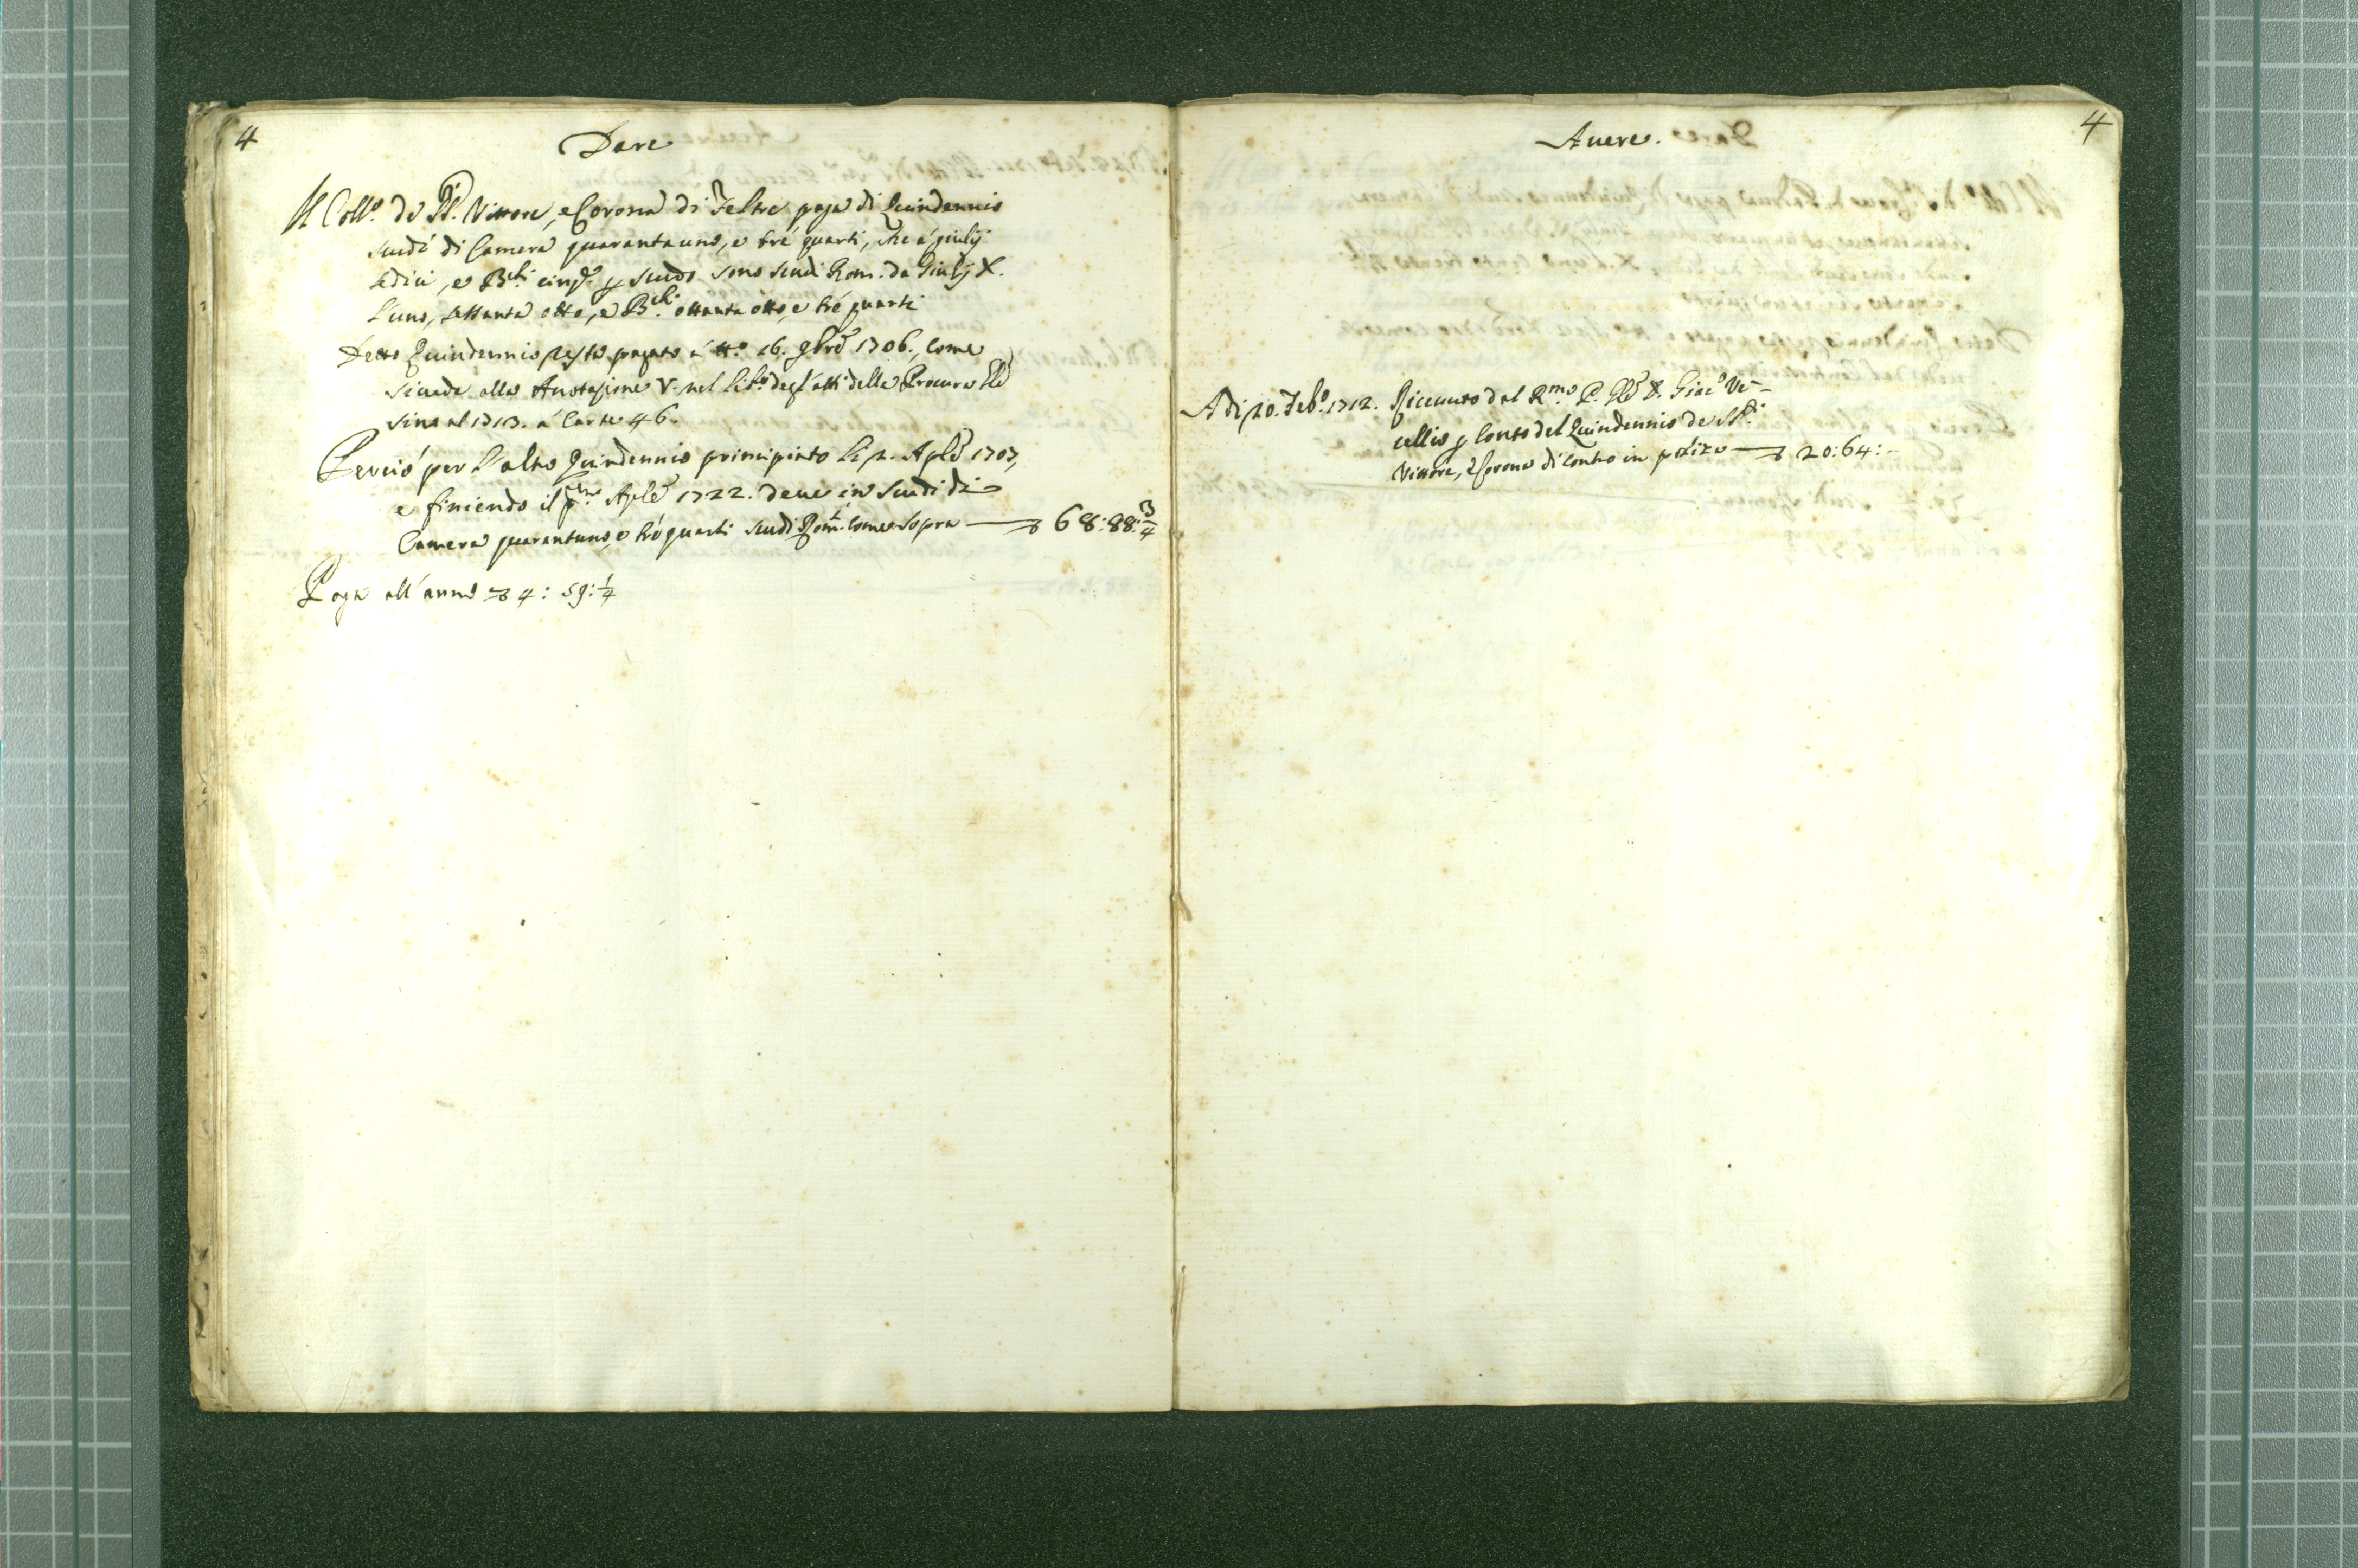 4
Dare
Il Coll.o de SS. Vittore, e Corona di Feltre paga di Quindennio
scudi di Camera quarantauno, e tré quarti, che á giulij
sedici, e B.chi cinq.e p scudo sono scudi Rom. da Giulij X.
l'uno, sessanta otto, e B.chi ottanta otto, e tré quarti
Detto Quindennio restò pagato á tt.o 16. 9bre 1706., come
si vede alla Anotazione V. nel lib.o degl'atti della Procura
sino al 1713. á Carte 46.
Perciò per l'altro Quindennio principiato li 2. Aple 1707,
e finiendo il p.mo Aple 1722. deve in scudi di
Camera quarantuno, e tré quarti scudi Rom. come sopra 68:88:3/4
Paga all'anno 4: 59:1/4
4
Avere.
Adi 20. Feb.o 1712. Riceuuto dal R.mo P. D. Giac.o Ve-
cellio p Conto del Quindennio de SS.ti
Vittore, e Corona di contro in potizo 20:64:-